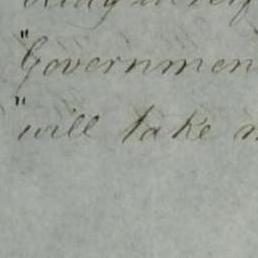 "Governmen
"will take